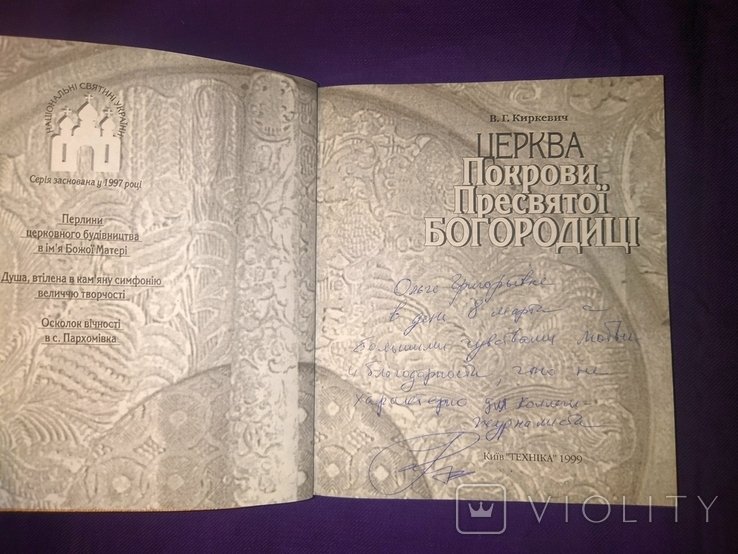 НАЦІОНАЛЬНІ СВЯТИНІ УКРАЇНИ
Серія заснована у 1997 році
Перлини
церковного будівництва
в ім'я Божої Матері
Душа, втілена в кам'яну симфонію
величчю творчості
Осколок вічності
в с. Пархомівка
В. Г. Киркевич
ЦЕРКВА
Покрови
Пресвятої
БОГОРОДИЦІ
Ольге Григорьевне
в день 8 марта с
большими чувствами любви
и благодарности, что не
характерно для коллеги
журналиста
Київ "ТЕХНІКА" 1999
VIOLITY